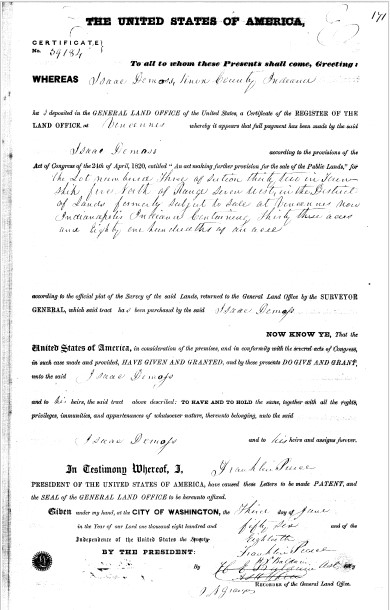 171
THE UNITED STATES OF AMERICA,
CERTIFICATE
No. 39184
To all to whom these Presents shall come, Greeting:
WHEREAS Isaac Demoss, Knox County Indiana
ha s deposited in the GENERAL LAND OFFICE of the United States, a Certificate of the REGISTER OF THE
LAND OFFICE, at Vincennes whereby it appears that full payment has been made by the said
Isaac Demoss according to the provisions of the
Act of Congress of the 24th of April, 1820, entitled "An act making further provision for the sale of the Public Lands," for
the Lot numbered three of Section thirty two in Town-
ship five North of Range seven West, in the District
of Lands formerly subject to sale at Vincennes now
Indianapolis Indiana Containing thirty three acres
and eighty one hundredths of an acre
according to the official plat of the Survey of the said Lands, returned to the General Land Office by the SURVEYOR
GENERAL, which said tract has been purchased by the said Isaac Demoss
NOW KNOW YE, That the
United States of America, in consideration of the premises, and in conformity with the several acts of Congress,
in such case made and provided, HAVE GIVEN AND GRANTED, and by these presents DO GIVE AND GRANT,
unto the said Isaac Demoss
and to his heirs, the said tract above described: TO HAVE AND TO HOLD the same, together with all the rights,
privileges, immunities, and appurtenances of whatsoever nature, thereunto belonging, unto the said
Isaac Demoss and to his heirs and assigns forever.
In Testimony Whereof, I, Franklin Pierce
PRESIDENT OF THE UNITED STATES OF AMERICA, have caused these Letters to be made PATENT, and
the SEAL of the GENERAL LAND OFFICE to be hereunto affixed.
Given under my hand, at the CITY OF WASHINGTON, the third day of June
in the Year of our Lord one thousand eight hundred and fifty six and of the
Independence of the United States the eightieth
BY THE PRESIDENT: Franklin Pierce
By H. E. Baldwin Asst. Sec'y
RECORDER of the General Land Office.